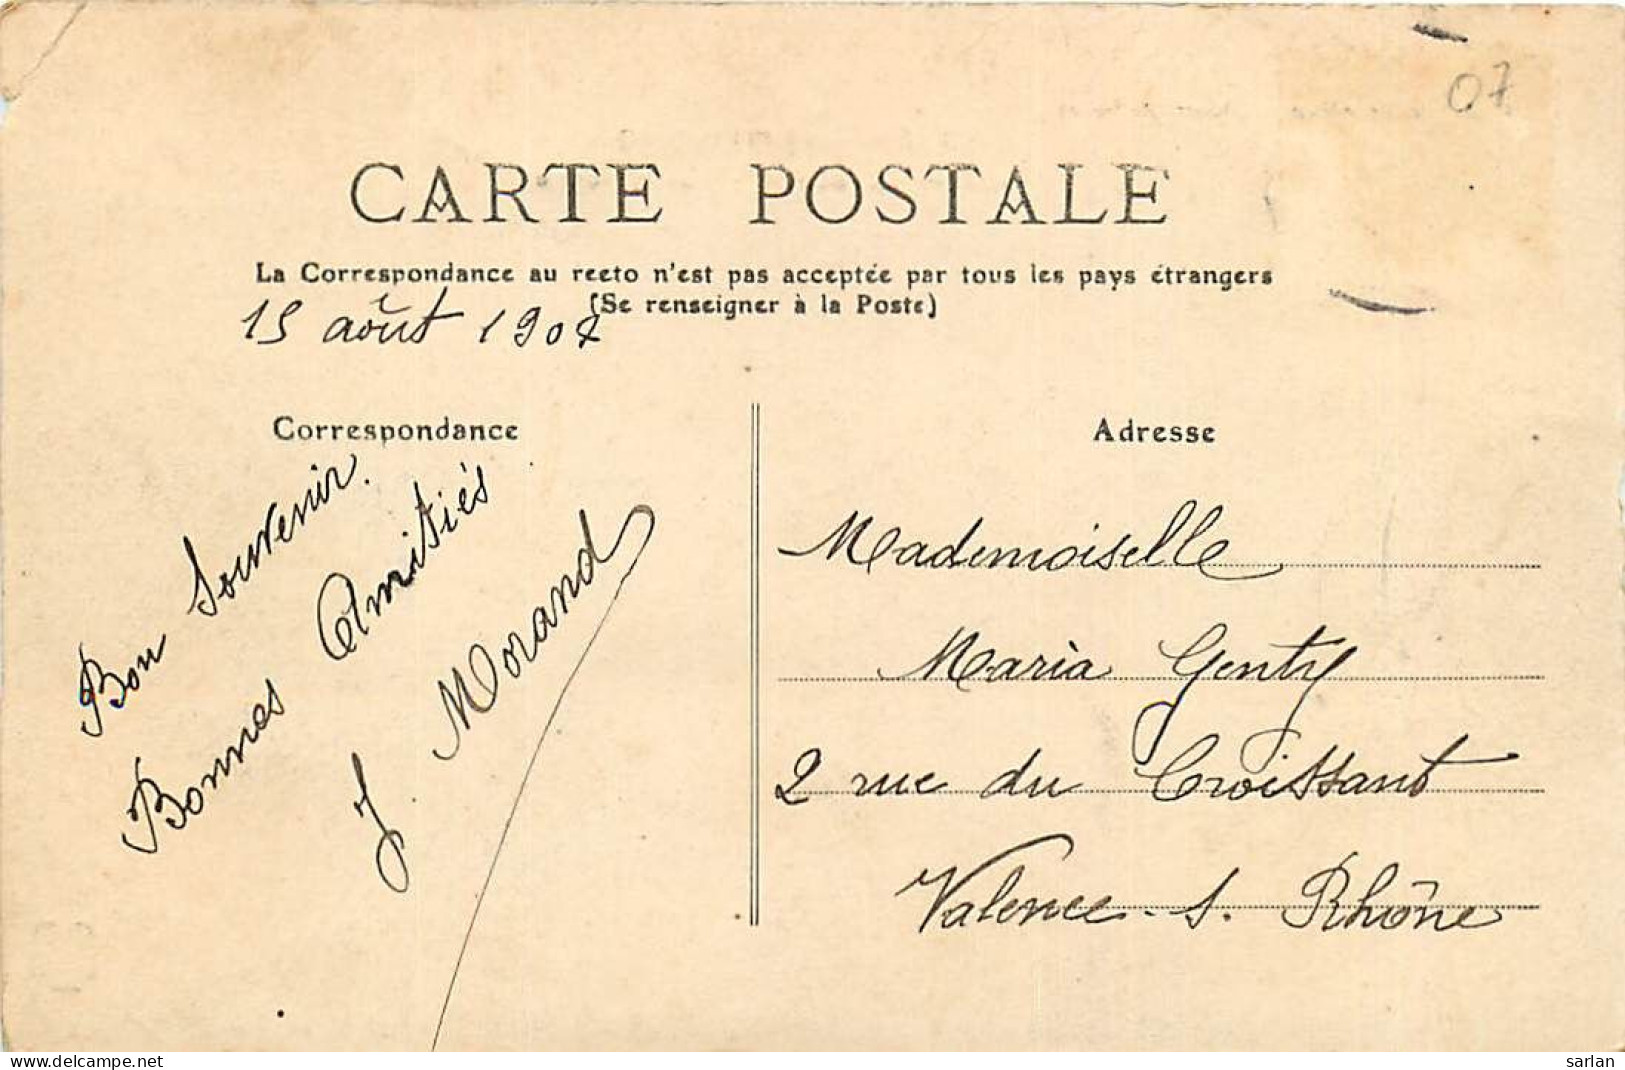 07
CARTE POSTALE
La Correspondance au recto n'est pas acceptée par tous les pays étrangers
(Se renseigner à la Poste)
15 août 1907
Correspondance
Bon Souvenir.
Bonnes Amitiés
J. Morand
Adresse
Mademoiselle
Maria Genty
2 rue du Croissant
Valence-s. Rhône
www.delcampe.net
sarlan